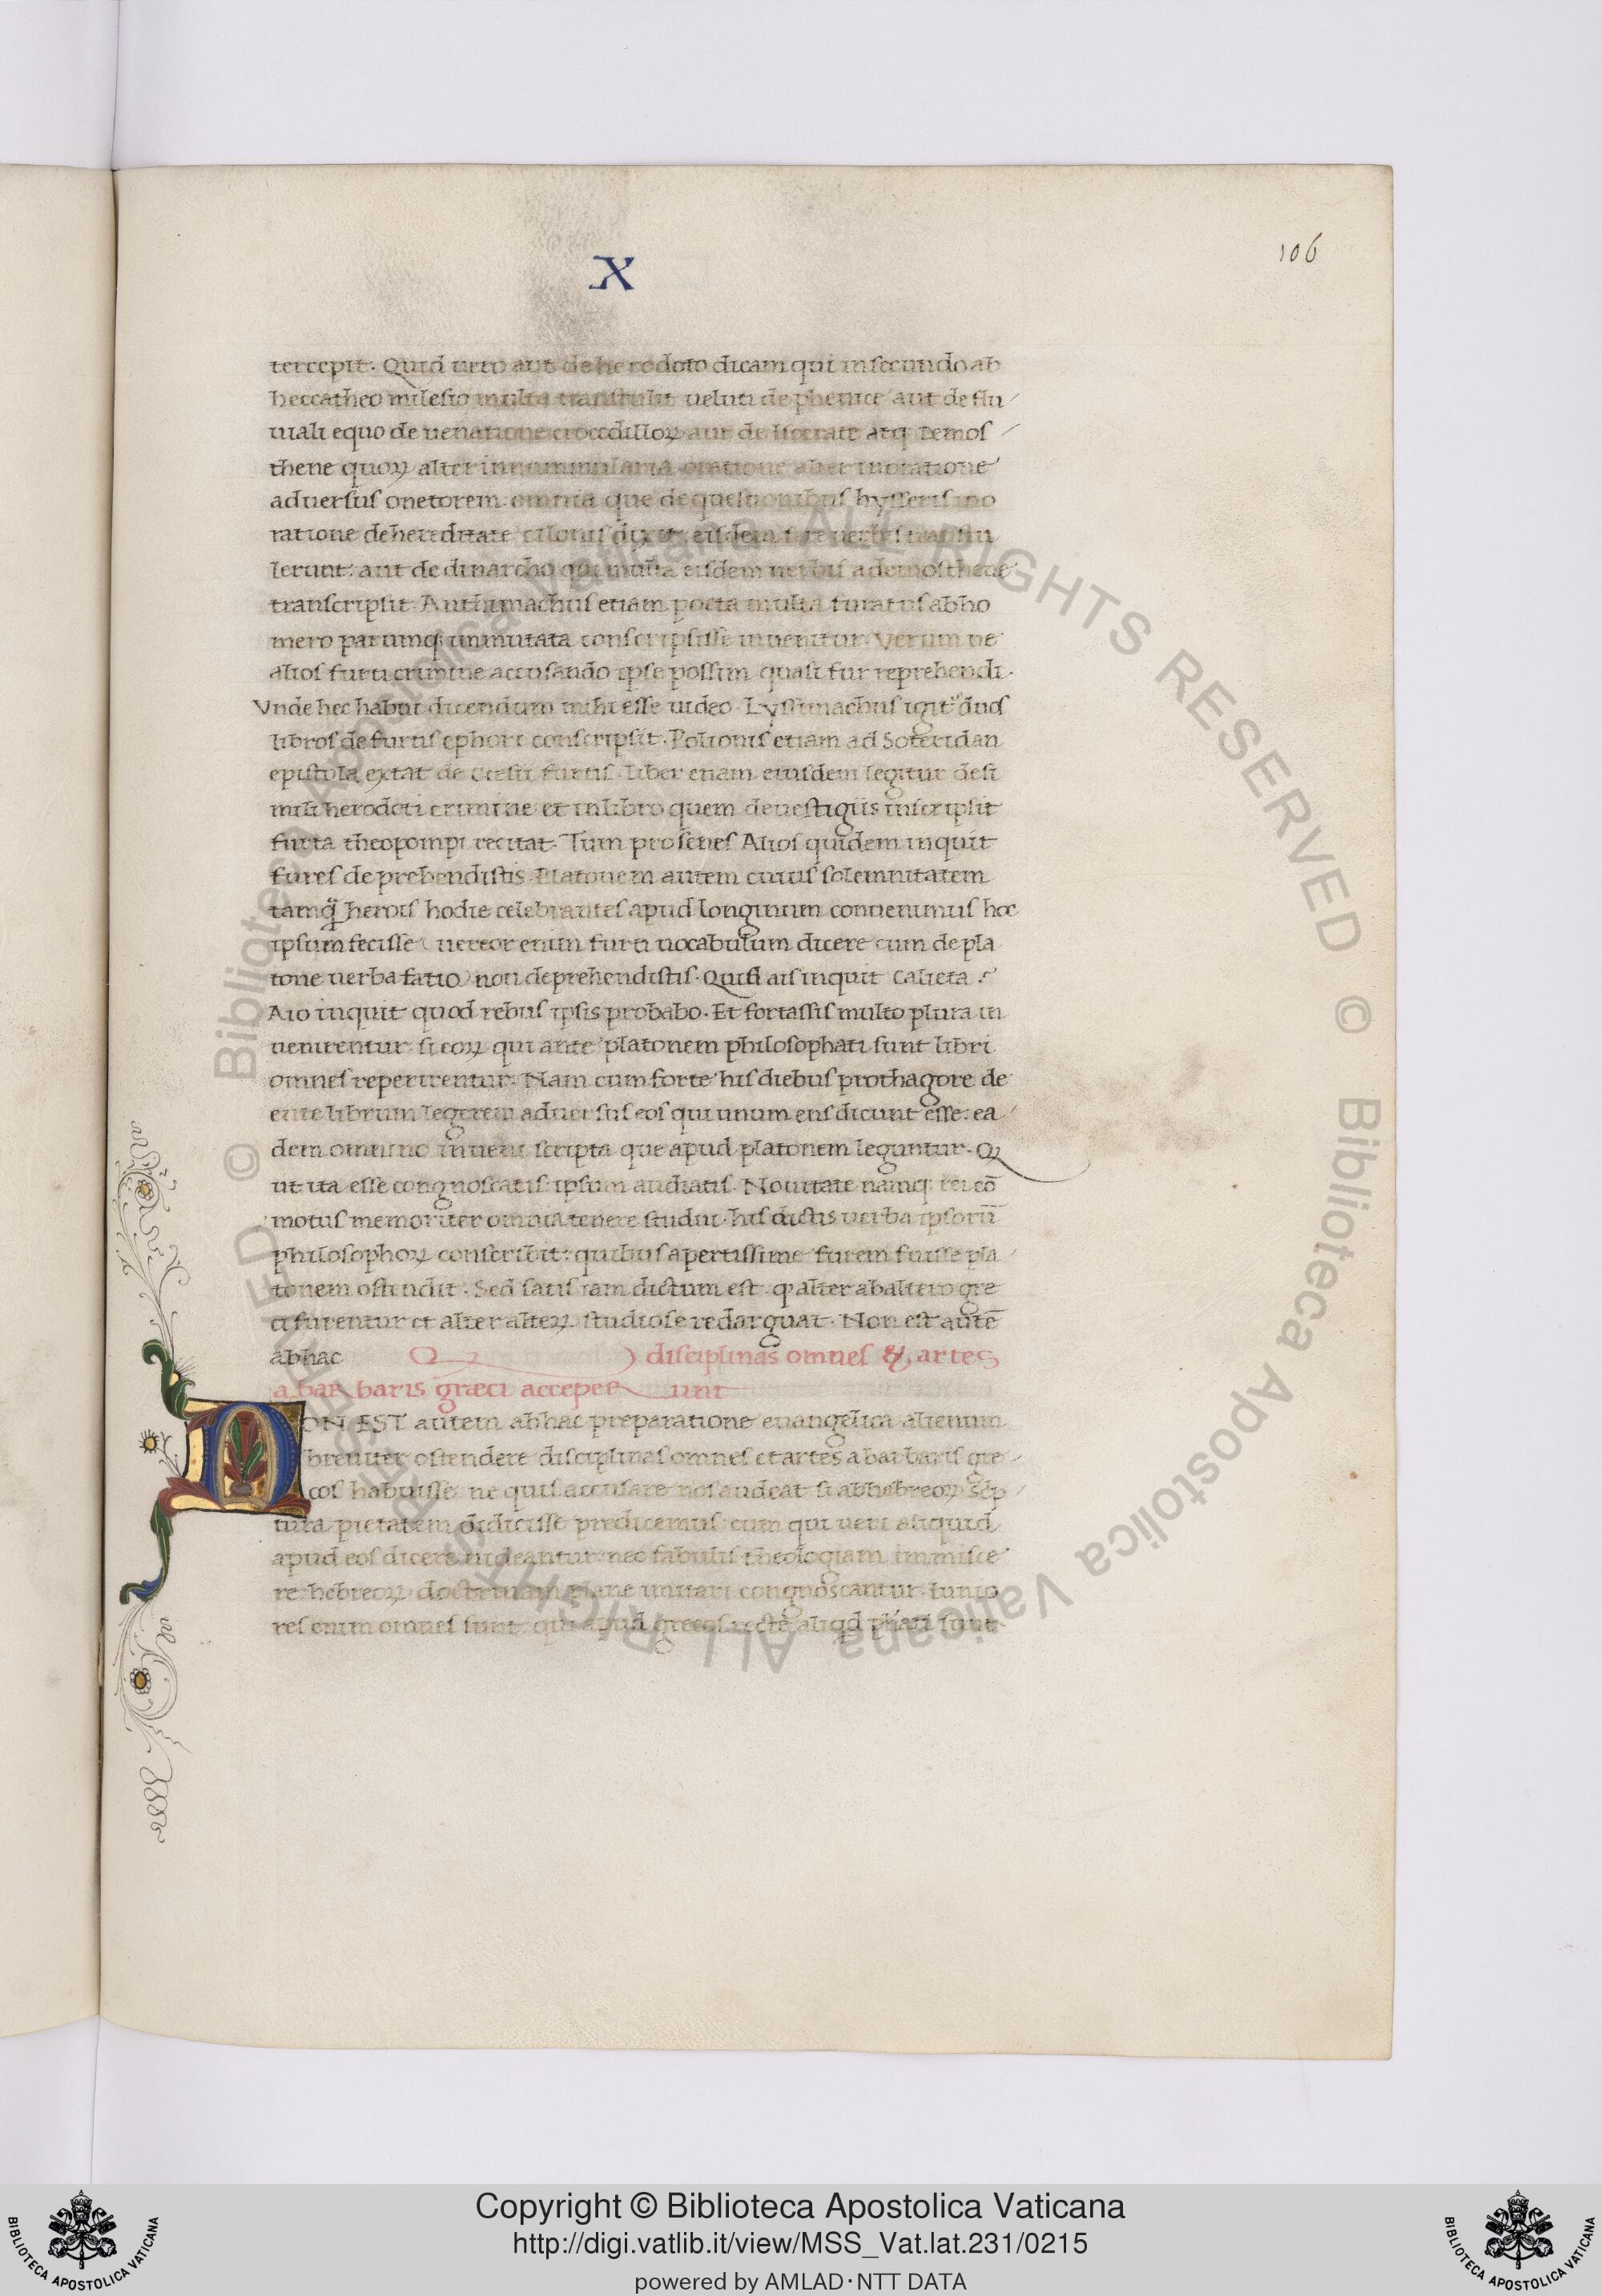 106
X
tercepit. Quid uero aut de herodoto dicam qui in secundo ab
heccatheo milesio multa transtulit ueluti de phenice aut de flu
uiali equo de uenatione crocodilloꝝ aut de Isocrate atq; Demos
thene quoꝝ alter in nummularia oratione alter in oratione
aduersus onetorem omnia que de questionibus hysseris in o
ratione de hereditate cilonis dixit eisdem fere uerbis transtu
lerunt: aut de dinarcho qui multa eisdem uerbis a demosthene
transcripsit. Authimachus etiam poeta multa furatus ab ho
mero parumq; inmutata conscripsisse inuenitur. Verum ne
alios furti crimine accusando ipse possim quasi fur reprehendi.
Vnde hec habui dicendum mihi esse uideo. Lyssimachus igit̃ duos
libros de furtis ephori conscripsit. Polionis etiam ad Soteridan
epistola extat de Ctesii furtis. liber etiam eiusdem legitur de si
mili herodoti crimine et in libro quem de uestigiis inscripsit
furta theopompi recitat. Tum prosenes Alios quidem inquit
fures deprehendistis. Platonem autem cuius solemnitatem
tamq̃ herois hodie celebrantes apud longinum conuenimus hoc
ipsum fecisse (uereor enim furti uocabulum dicere cum de pla
tone uerba fatio) non deprehendistis. Quid ais inquit Calieta?
Aio inquit quod rebus ipsis probabo. Et fortassis multo plura in
uenirentur si eoꝝ qui ante platonem philosophati sunt libri
omnes reperirentur. Nam cum forte his diebus prothagore de
ente librum legerem aduersus eos qui unum ens dicunt esse: ea
dem omnino inueni scripta que apud platonem leguntur. Qꝫ
ut ita esse congnoscatis: ipsum audiatis. Nouitate namq; rei cō
motus memoriter omnia tenere studui. his dictis uerba ipsorū
philosophoꝝ conscribit: quibus apertissime furem fuisse pla
tonem ostendit. Sed satis iam dictum est. q alter ab altero gre
ci furentur et alter alteꝝ studiose redarguat. Non est autē
ab hac Qꝫ disciplinas omnes & artes
a barbaris græci acceperunt
NON EST autem ab hac preparatione euangelica alienum
breuiter ostendere disciplinas omnes et artes a barbaris gre
cos habuisse: ne quis accusare nos audeat si ab hebreoꝝ sc̄p
tura pietatem didicisse predicemus cum qui ueri aliquid
apud eos dicere uideantur: nec fabulis theologiam immisce
re: hebreoꝝ doctrinam plane imitari congnoscantur. Iunio
res enim omnes sunt qui apud grecos recte aliqd ph̃ati sunt
Copyright © Biblioteca Apostolica Vaticana
http://digi.vatlib.it/view/MSS_Vat.lat.231/0215
powered by AMLAD·NTT DATA
BIBLIOTECA APOSTOLICA VATICANA
BIBLIOTECA APOSTOLICA VATICANA
© Biblioteca Apostolica Vaticana ALL RIGHTS RESERVED © Biblioteca Apostolica Vaticana ALL RIGHTS RESERVED